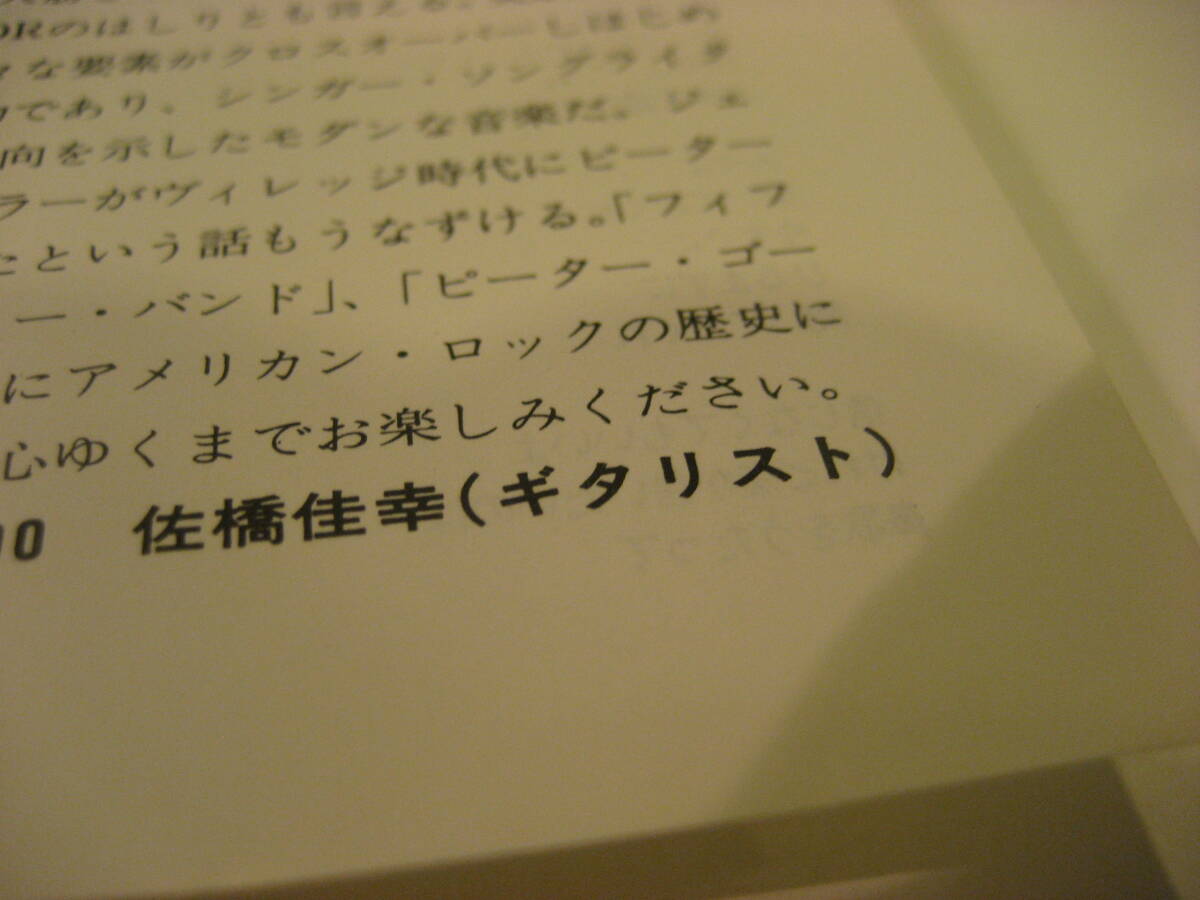 ORのはしりとも言える。
な要素がクロスオーバーしはじめ
であり、シンガー・ソングライタ
向を示したモダンな音楽だ。ジェ
ラーがヴィレッジ時代にピーター
たという話もうなずける。「フィフ
ー・バンド」、「ピーター・ゴー
にアメリカン・ロックの歴史に
心ゆくまでお楽しみください。
00 佐橋佳幸(ギタリスト)